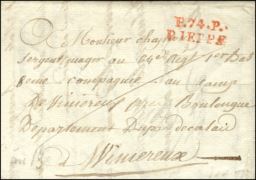 P.74.P.
DIEPPE
A Monsieur
Sergent au 24e Regt 1er Bat
compagnie au camp
De Vimereux pres Boulougne
Departement Du pas de calais
a Wimereux